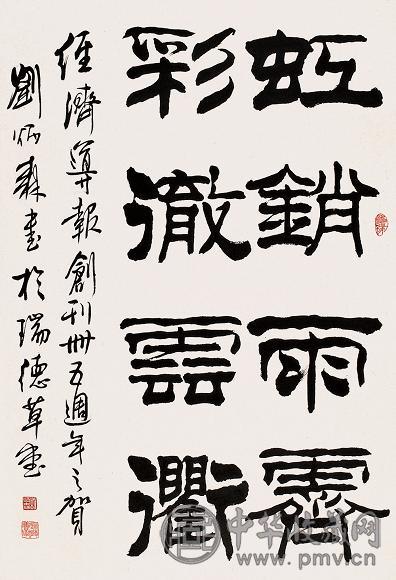 虹銷雨霽
彩徹雲衢
經濟導報創刊卌五週年之賀
劉炳森書於瑞德草堂
中华收藏网
www.pmv.cn